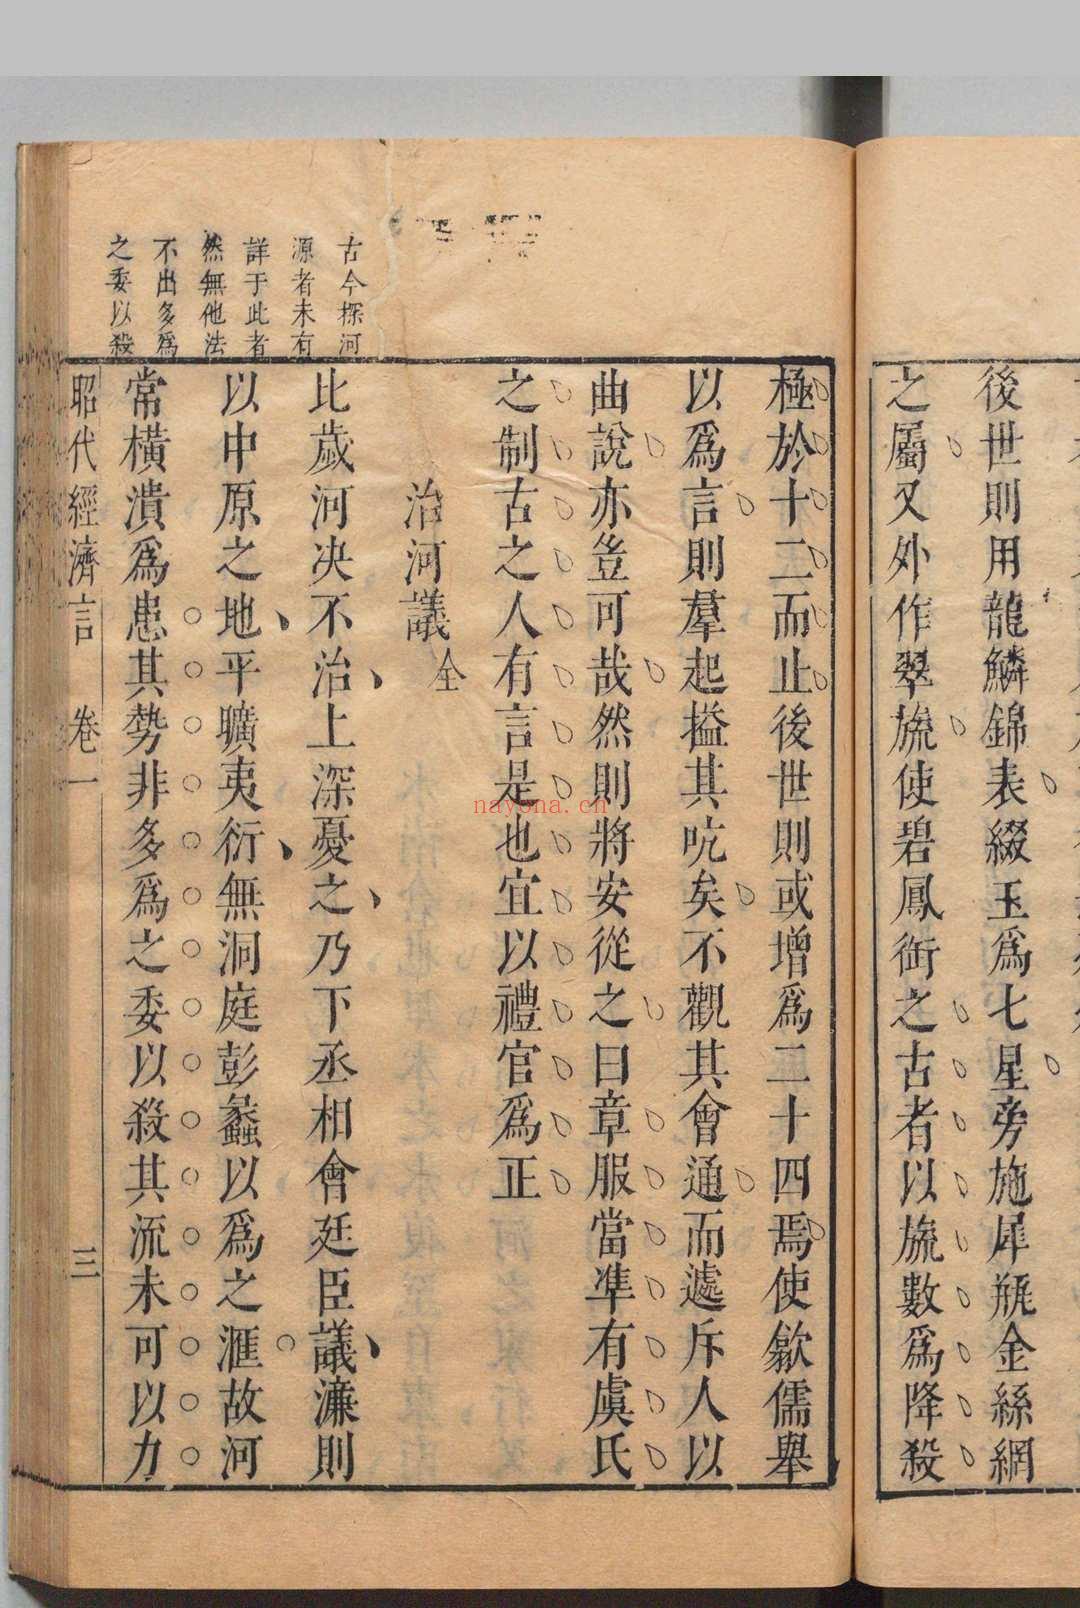 後世則用龍鱗錦表綴玉爲七星旁施犀瓶金絲網
之屬又外作翠旒使碧鳳銜之古者以旒數爲降殺
極於十二而止後世則或增爲二十四焉使歙儒舉
以爲言則羣起搤其吭矣不觀其會通而遽斥人以
曲說亦豈可哉然則將安從之曰章服當準有虞氏
之制古之人有言是也宜以禮官爲正
治河議全
比歲河决不治上深憂之乃下丞相會廷臣議濂則
以中原之地平曠夷衍無洞庭彭蠡以爲之滙故河
常橫潰爲患其勢非多爲之委以殺其流未可以力
古今探河
源者未有
詳于此者
然無他法
不出多爲
之委以殺
昭代經濟言 卷一 三
nayona.cn